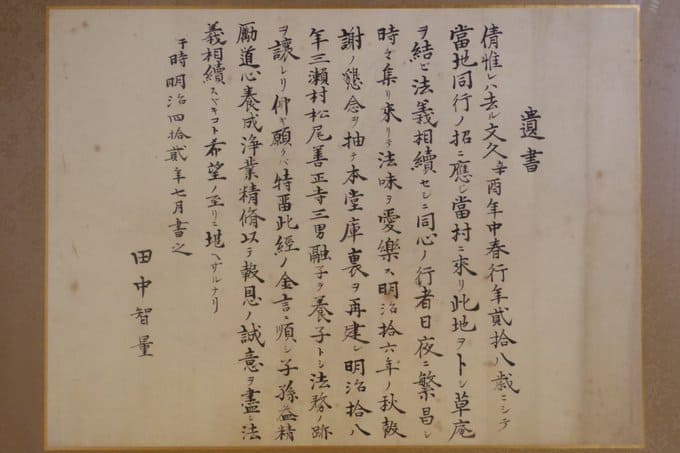 遺書
倩惟レハ去ル文久辛酉年中春行年貳拾八歳ニシテ
當地同行ノ招ニ應シ當村ニ來リ此地ヲトシ草庵
ヲ結ビ法義相續セシニ同心ノ行者日夜ニ繁昌シ
時々集リ來リテ法味ヲ愛樂ス明治拾六年ノ秋報
謝ノ懇念ヲ抽テ本堂庫裏ヲ再建シ明治拾八
年三瀬村松尾善正寺三男融子ヲ養子トシ法務ノ跡
ヲ讓レリ仰キ願クバ特畱此經ノ金言ニ順シ子孫益精
勵道心養成浄業精脩以テ報恩ノ誠意ヲ盡シ法
義相續スベキコト希望ノ至リニ堪ヘザルナリ
于時明治四拾貳年七月書之
田中智量